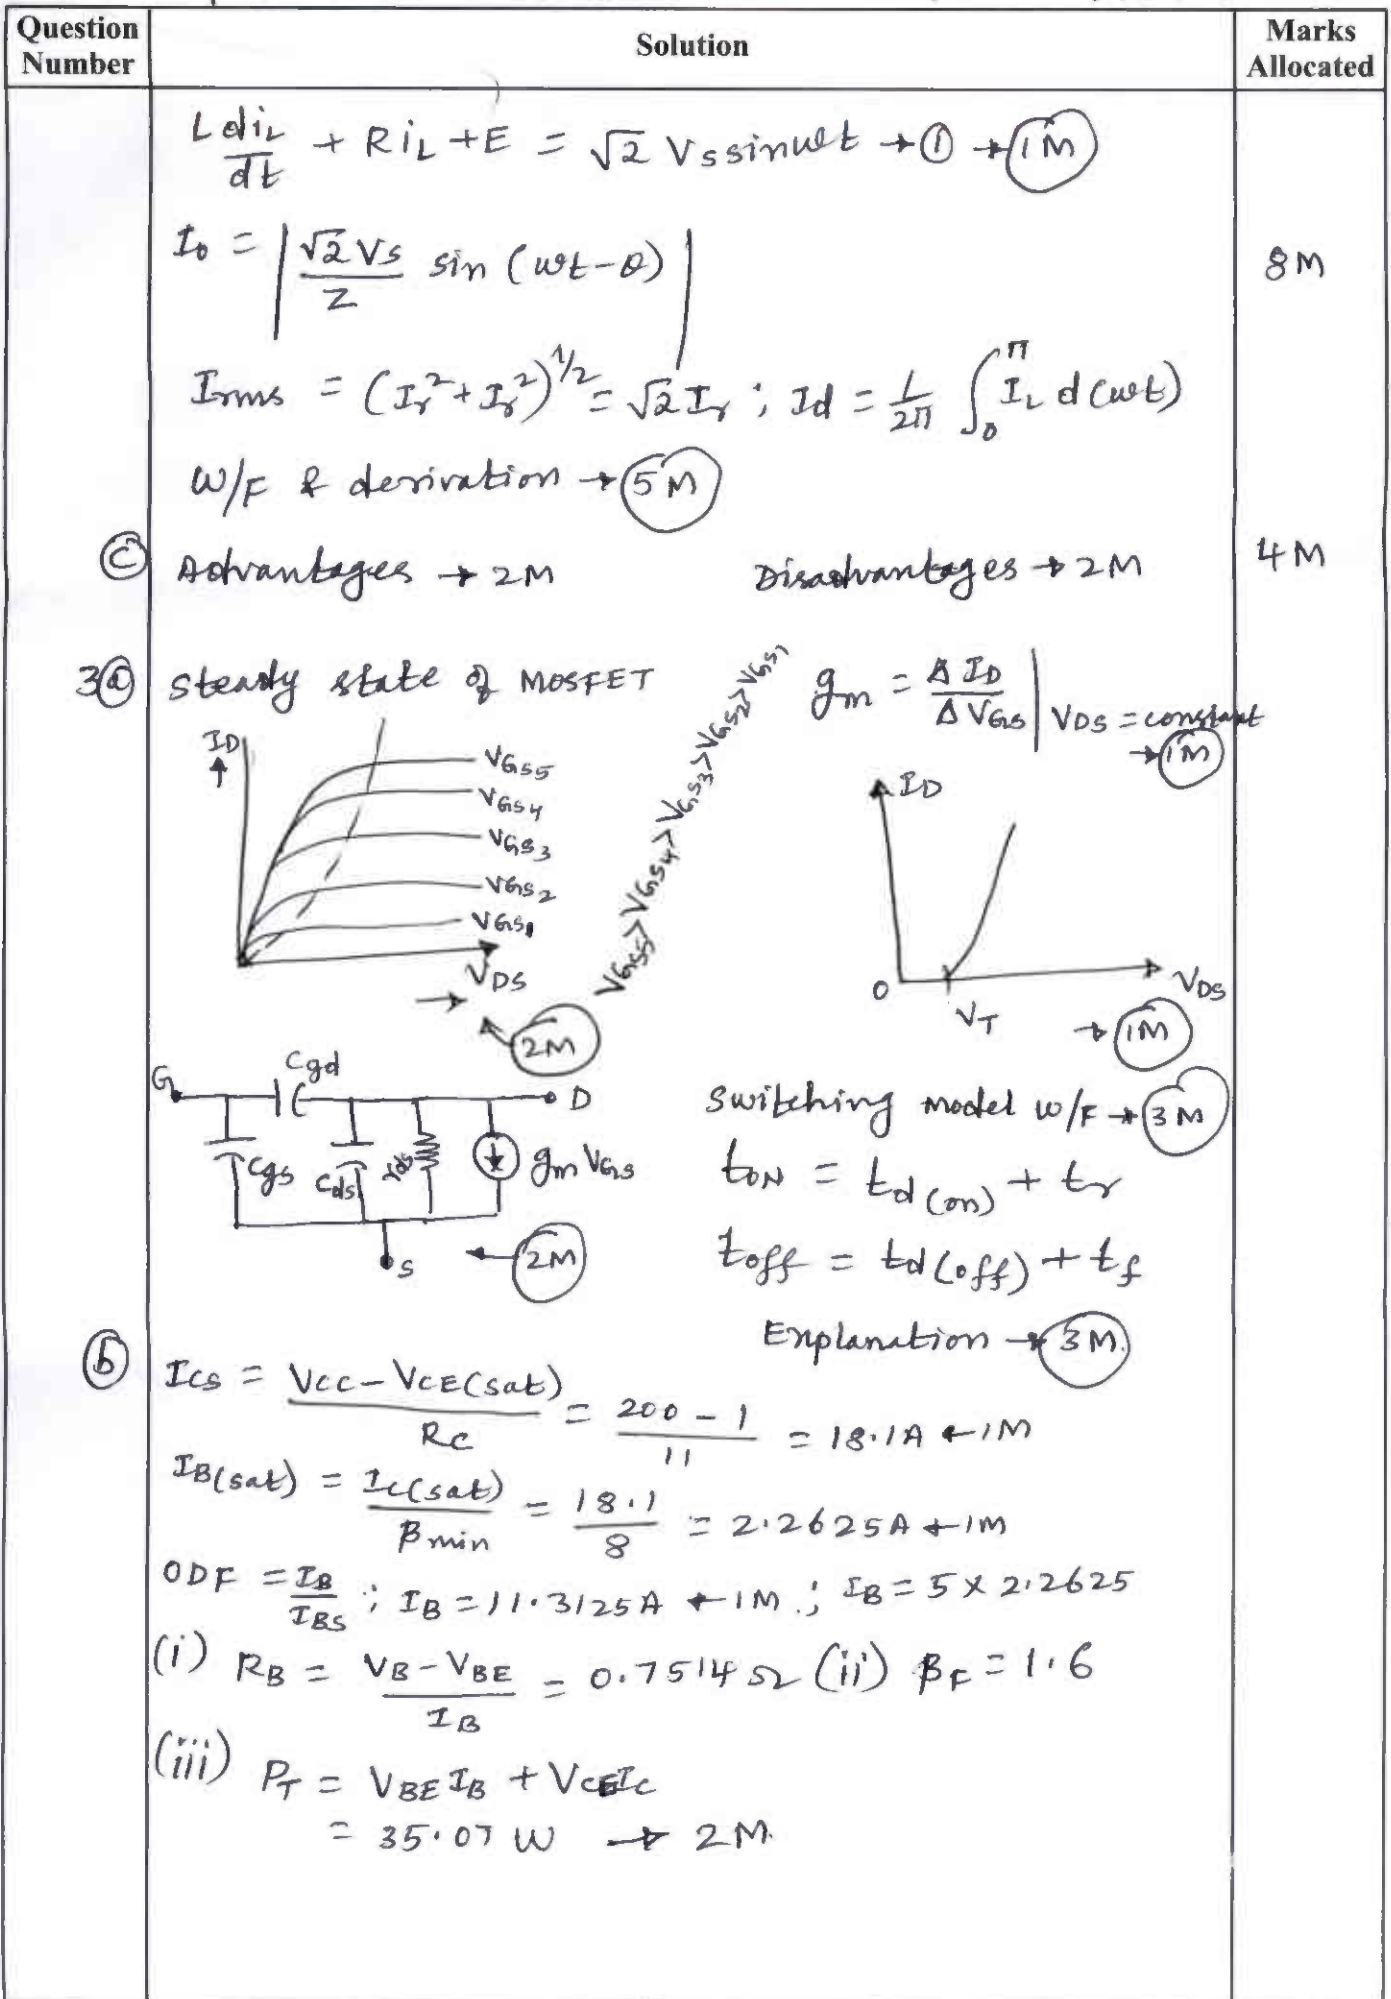 Question Number
Solution
Marks Allocated
L di_L/dt + R i_L + E = √2 Vs sinωt → ① → 1M
I_0 = | √2 Vs/Z sin (ωt-θ) |
8M
Irms = (I_r² + I_r²)^1/2 = √2 I_r ; Id = 1/2π ∫_0^π I_L d(ωt)
W/F & derivation → 5M
ⓒ Advantages → 2M Disadvantages → 2M 4M
3ⓐ steady state of MOSFET
g_m = ΔI_D/ΔV_GS | V_DS = constant
→ 1M
I_D
↑
V_GS5
V_GS4
V_GS3
V_GS2
V_GS1
V_DS
→
2M
V_GS5 > V_GS4 > V_GS3 > V_GS2 > V_GS1
I_D
0
V_T
V_DS
→ 1M
G
Cgd
D
Cgs
Cds
rds
g_m V_GS
S
← 2M
Switching model W/F → 3M
t_ON = t_d(on) + t_r
t_off = t_d(off) + t_f
Explanation → 3M.
ⓑ I_CS = V_CC - V_CE(sat)/R_C = 200 - 1/11 = 18.1A ← 1M
I_B(sat) = I_C(sat)/β_min = 18.1/8 = 2.2625A ← 1M
ODF = I_B/I_BS ; I_B = 11.3125A ← 1M. ; I_B = 5 × 2.2625
(i) R_B = V_B - V_BE/I_B = 0.7514 Ω (ii) β_F = 1.6
(iii) P_T = V_BE I_B + V_CE I_C
= 35.07 W → 2M.